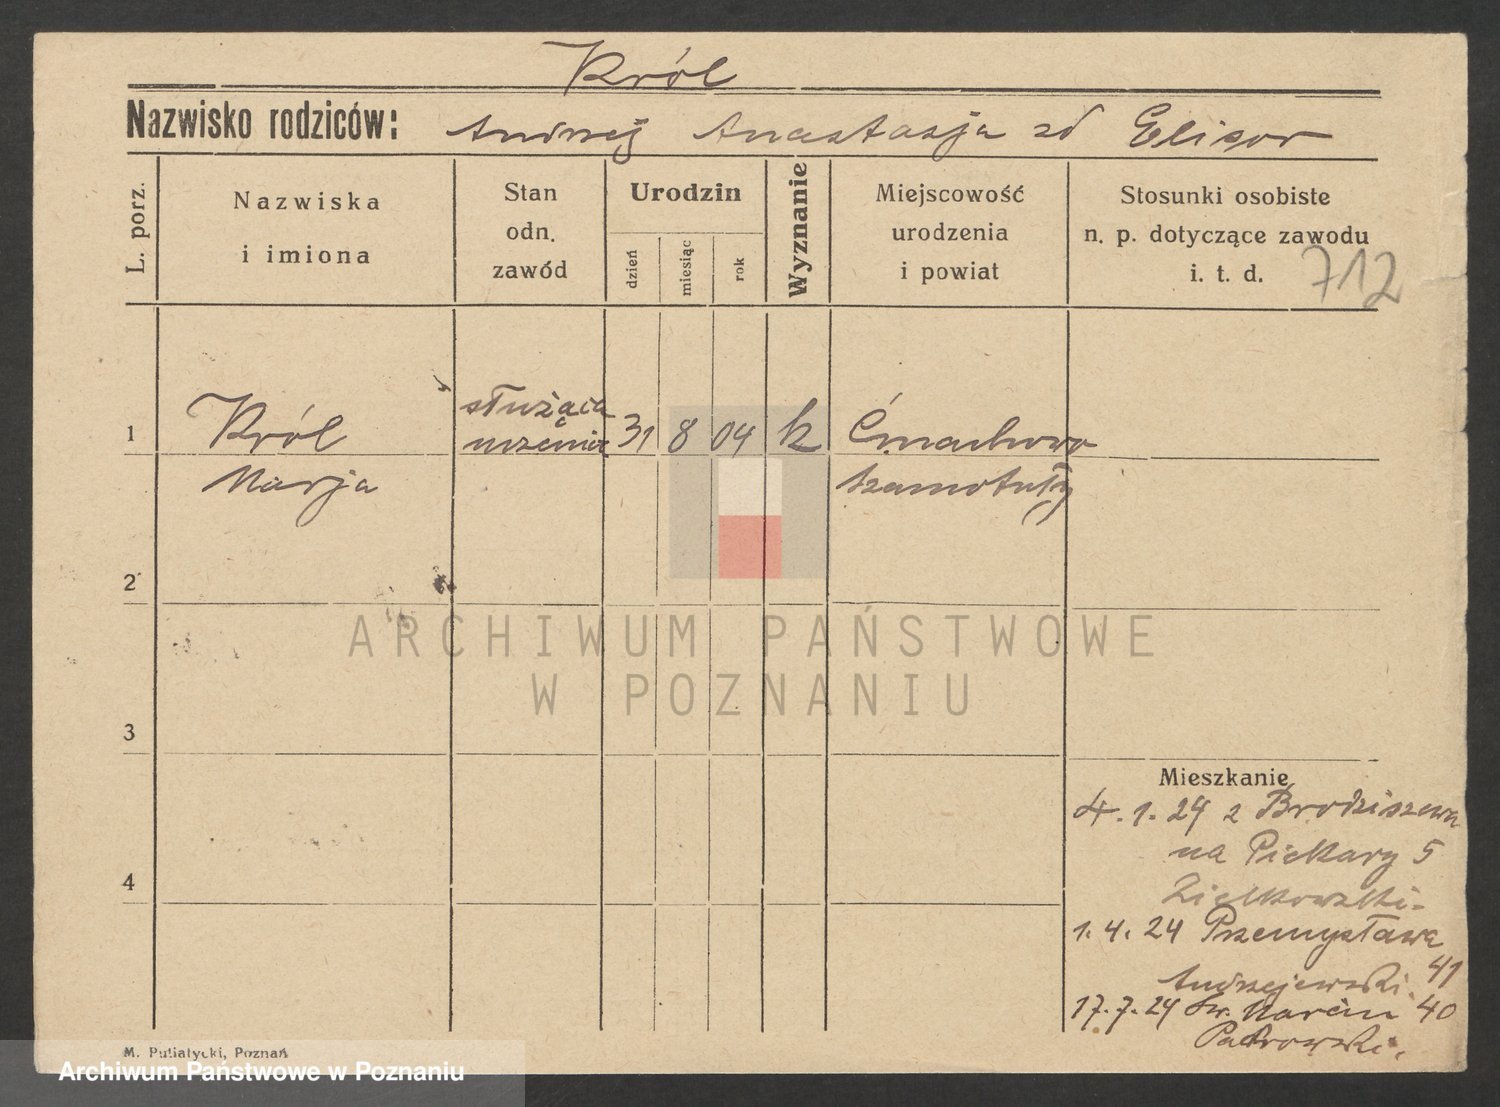 Król
Nazwisko rodziców: Andrzej Anastazja zd Elisor
L. porz.
Nazwiska
i imiona
Stan
odn.
zawód
Urodzin
dzień
miesiąc
rok
Wyznanie
Miejscowość
urodzenia
i powiat
Stosunki osobiste
n. p. dotyczące zawodu
i. t. d.
712
1
Król
Marja
służąca
uczenica
31 8 04 k
Ćmachowo
Szamotuły
2
3
4
ARCHIWUM PAŃSTWOWE
W POZNANIU
Mieszkanie
4. 1. 24 z Brodziszewa
na Piekary 5
Zielkowski-
1. 4. 24 Przemysława
41
Andrzejewski.
17. 7. 24 Św. Marcin 40
M. Putiatycki, Poznań
Archiwum Państwowe w Poznaniu